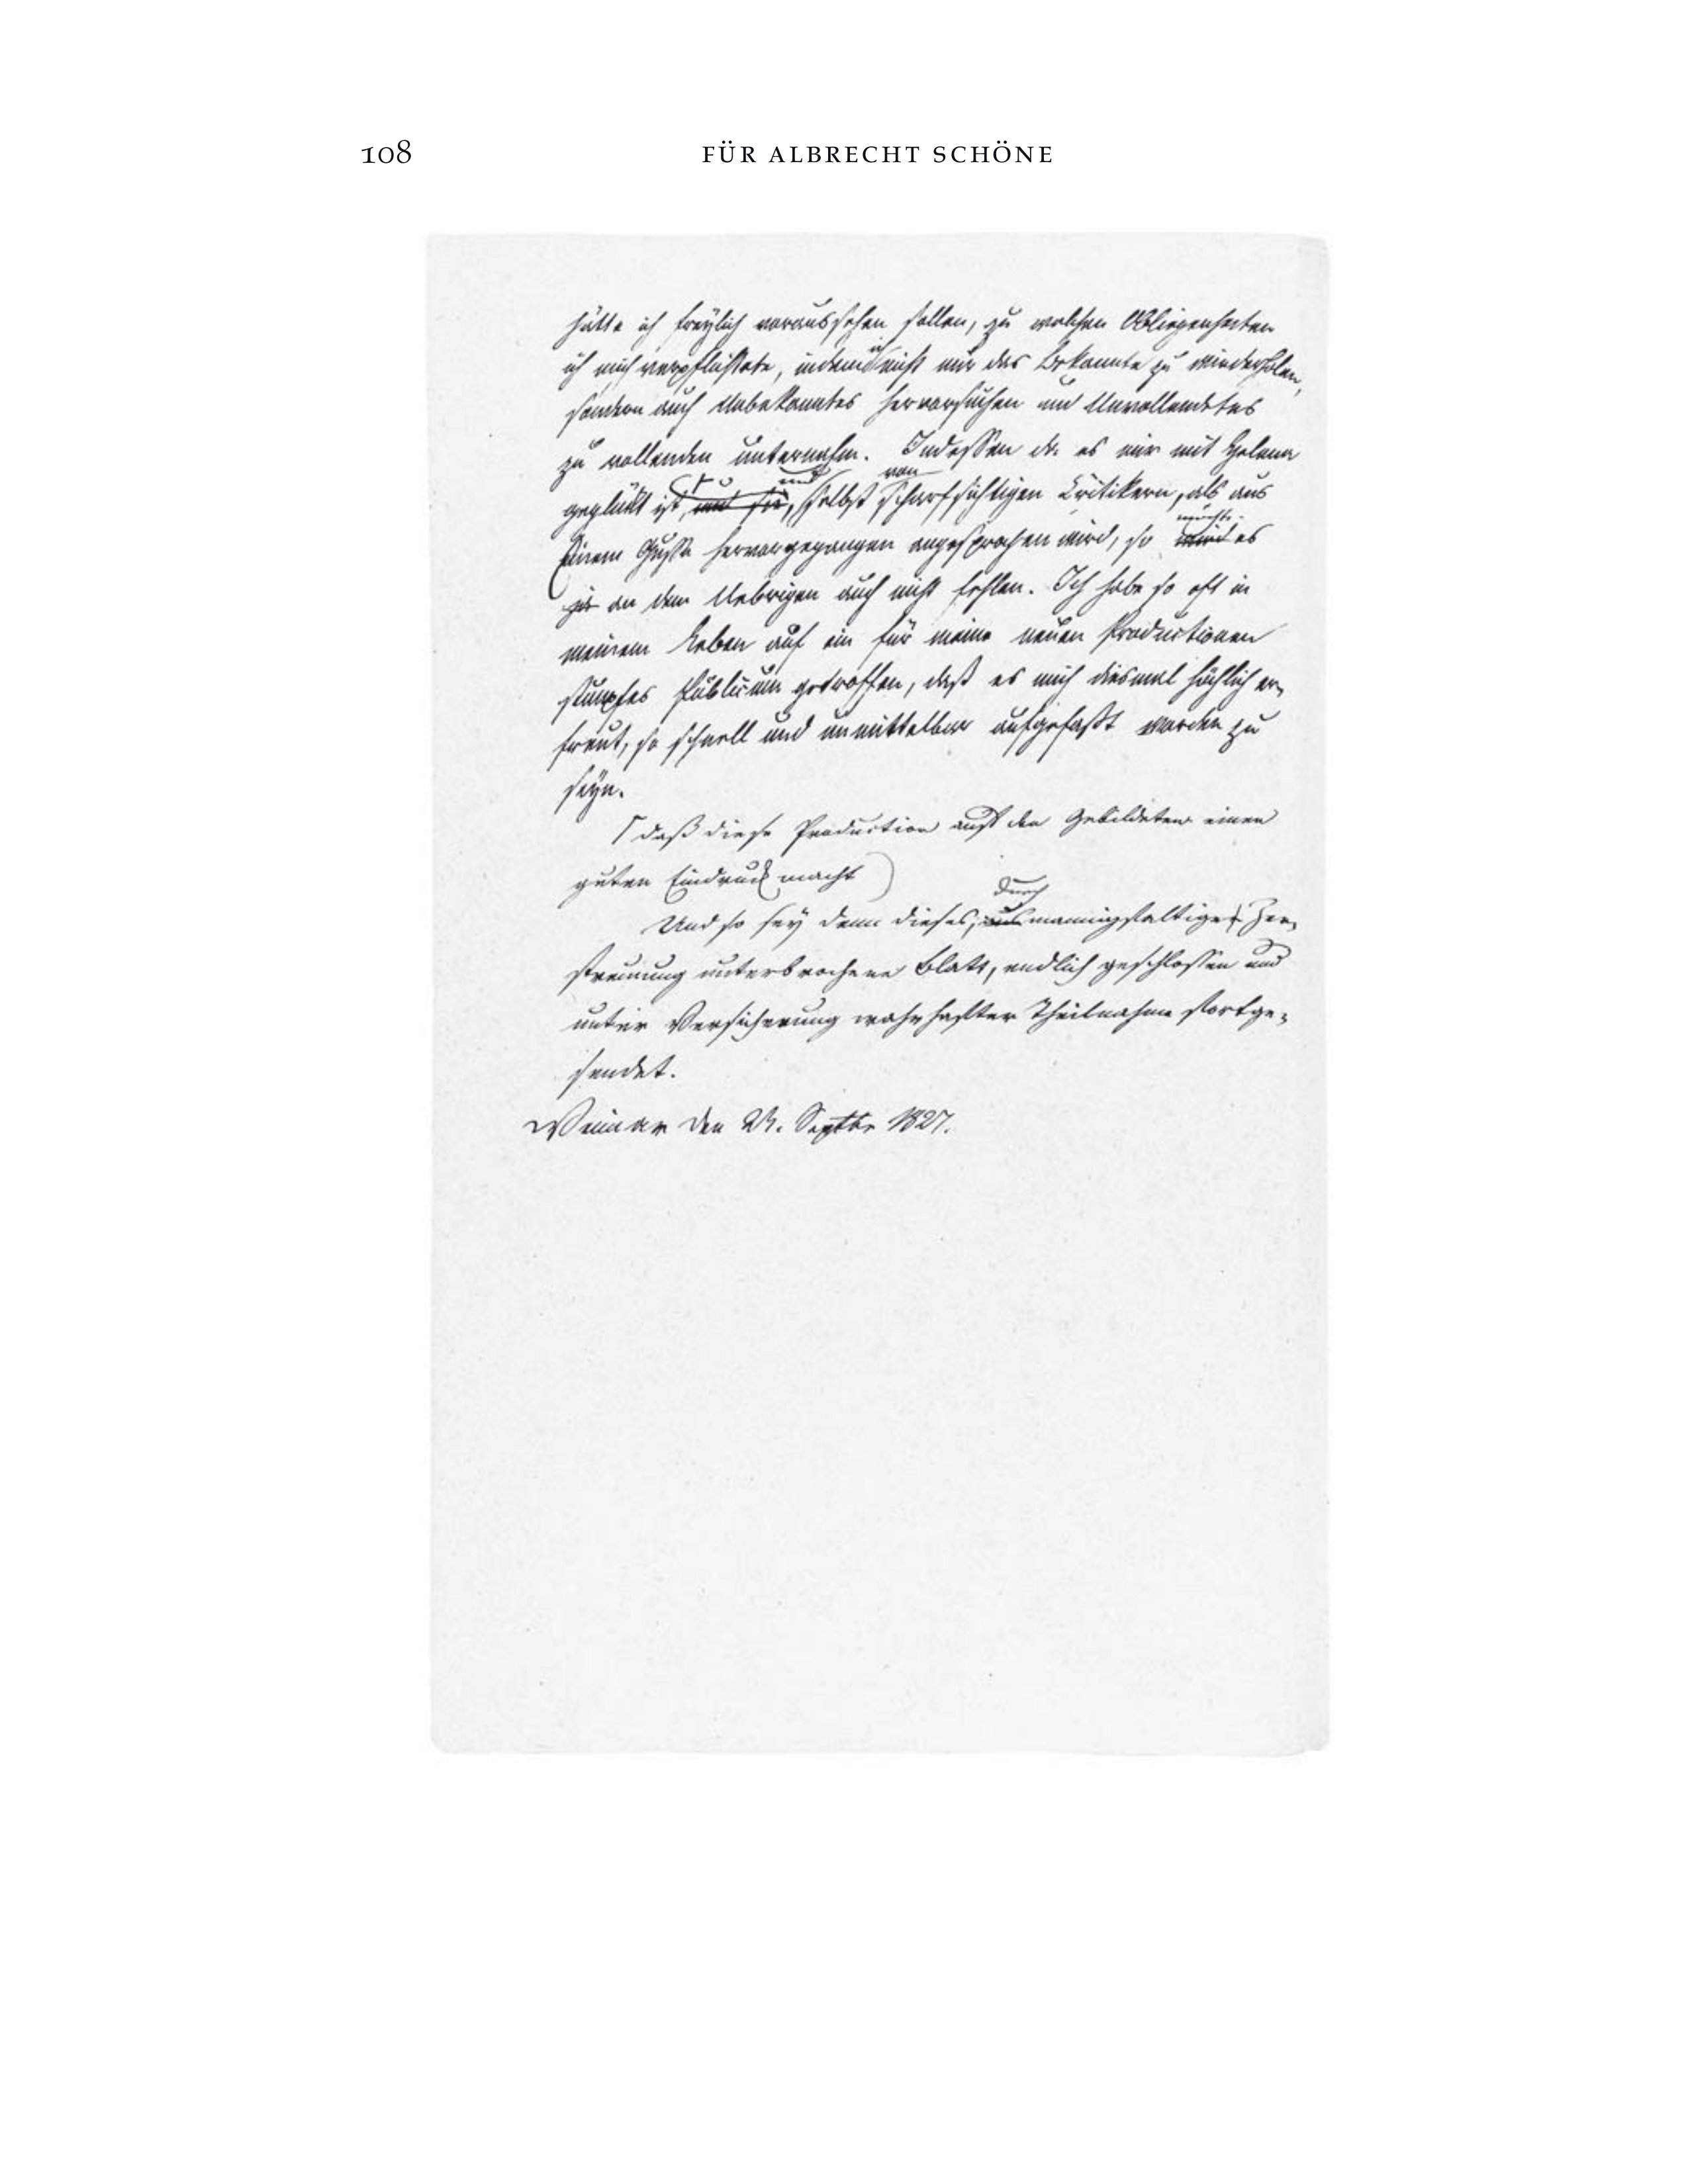 108 FÜR ALBRECHT SCHÖNE
hätte ich freylich voraussehen sollen, zu welchen Obliegenheiten
ich mich verpflichtete, indem ich nicht nur das Bekannte zu wiederholen,
sondern auch Unbekanntes hervorsuchen und Unvollendetes
zu vollenden unternahm. Indessen da es mir mit Helena
und von
geglückt ist, und sie, selbst scharfsichtigen Kritikern, als aus
möchte
Einem Gusse hervorgegangen angesprochen wird, so wird es
ja an dem Uebrigen auch nicht fehlen. Ich habe so oft in
meinem Leben auf ein für meine neuen Productionen
stumpfes Publicum getroffen, daß es mich diesmal höchlich er-
freut, so schnell und unmittelbar aufgefaßt worden zu
seyn.
daß diese Production auf den Gebildeten einen
guten Eindruck macht)
durch
Und so sey denn dieses, aus mannigfaltiger Zer-
streuung unterbrochene Blatt, endlich geschlossen und
unter Versicherung wahrhafter Theilnahme fortge-
sendet.
Weimar den Septbr 1827.